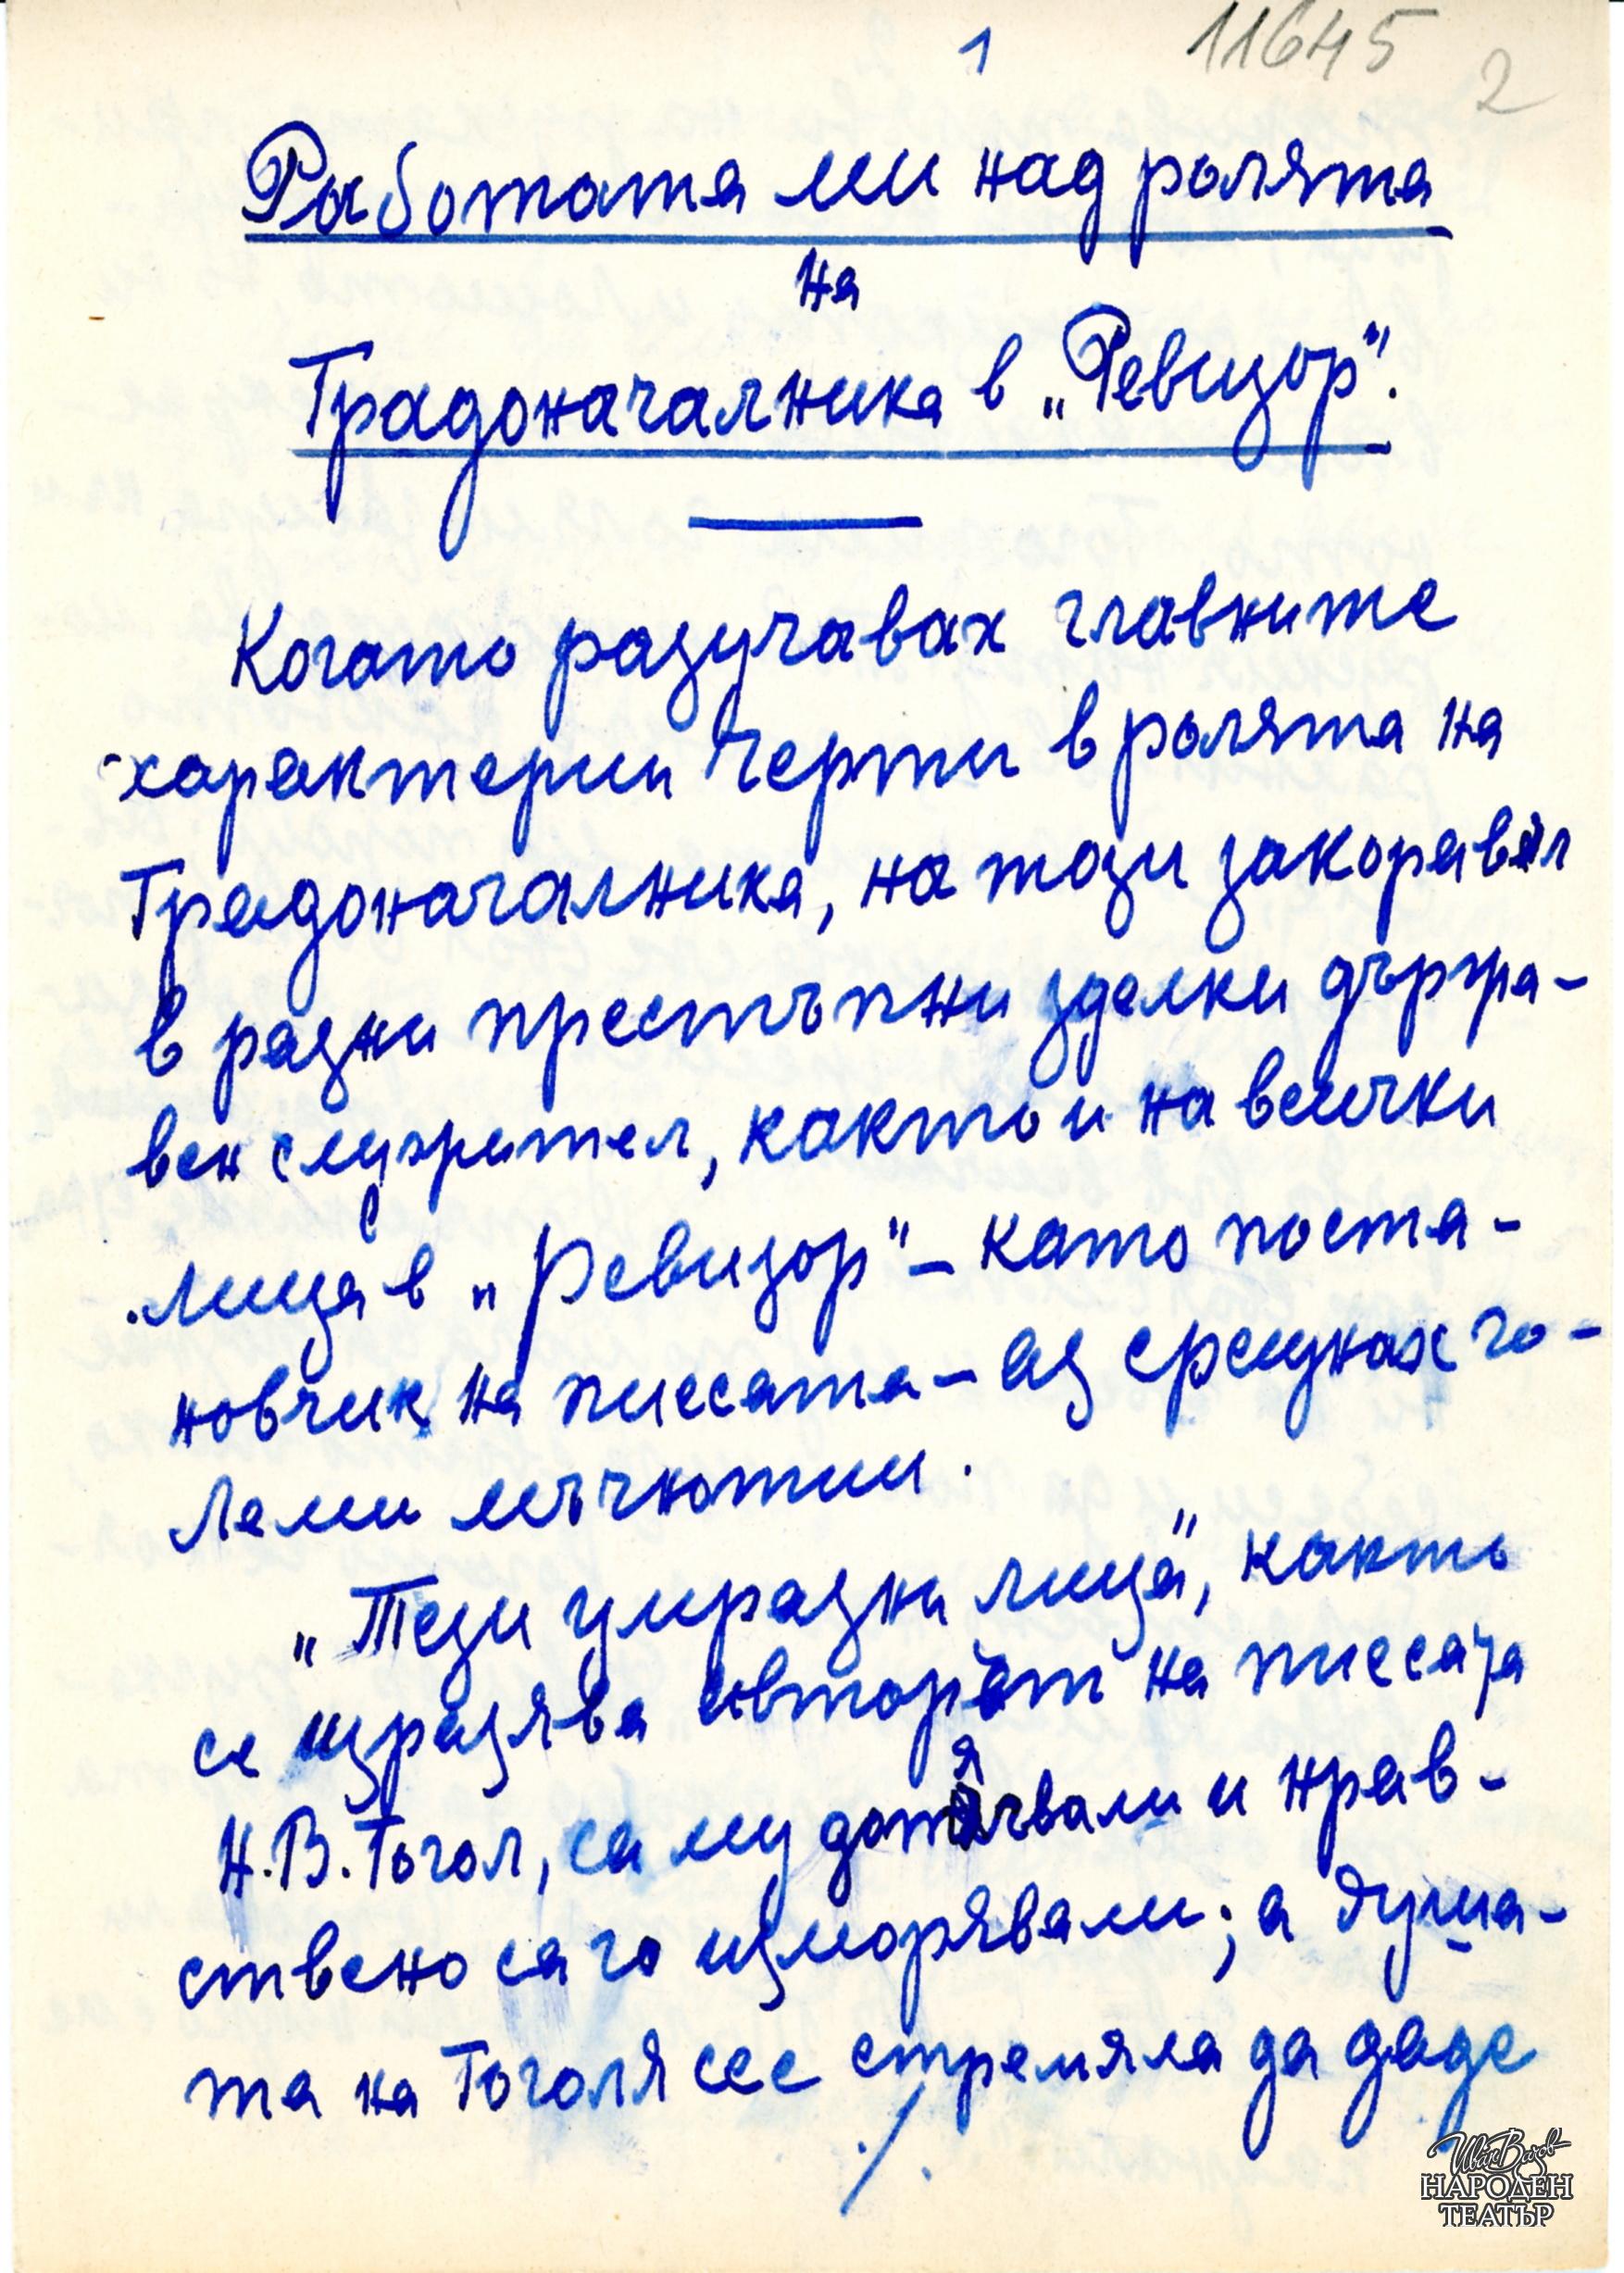 1
11645
2
Работата ми над ролята
на
Градоначалника в „Ревизор".
Когато разучавах главните
характерни черти в ролята на
Градоначалника, на този закоравял
в разни престъпни зделки държа-
вен служител, както и на всички
лица в „Ревизор" – като поста-
новчик на пиесата – аз срещнах го-
леми мъчнотии.
„Тези умразни лица", както
се изразява авторът на пиесата
Н. В. Гогол, са му дотягвали и нрав-
ствено са го изморявали; а душа-
та на Гоголя се е стремяла да даде
./.
Иван Вазов
НАРОДЕН
ТЕАТЪР